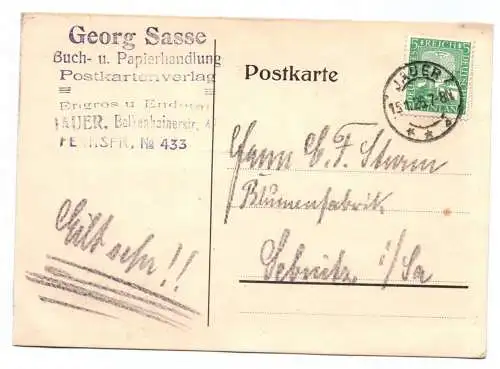 Georg Sasse
Buch- u. Papierhandlung
Postkartenverlag
Engros u. Endetail
JAUER, Bolkenhainerstr. 4
FERNSPR. № 433
Postkarte
5 REICH 5
JAUER
Herrn C. F. Sturm
Blumenfabrik
Sebnitz i/Sa
Eilt sehr!!